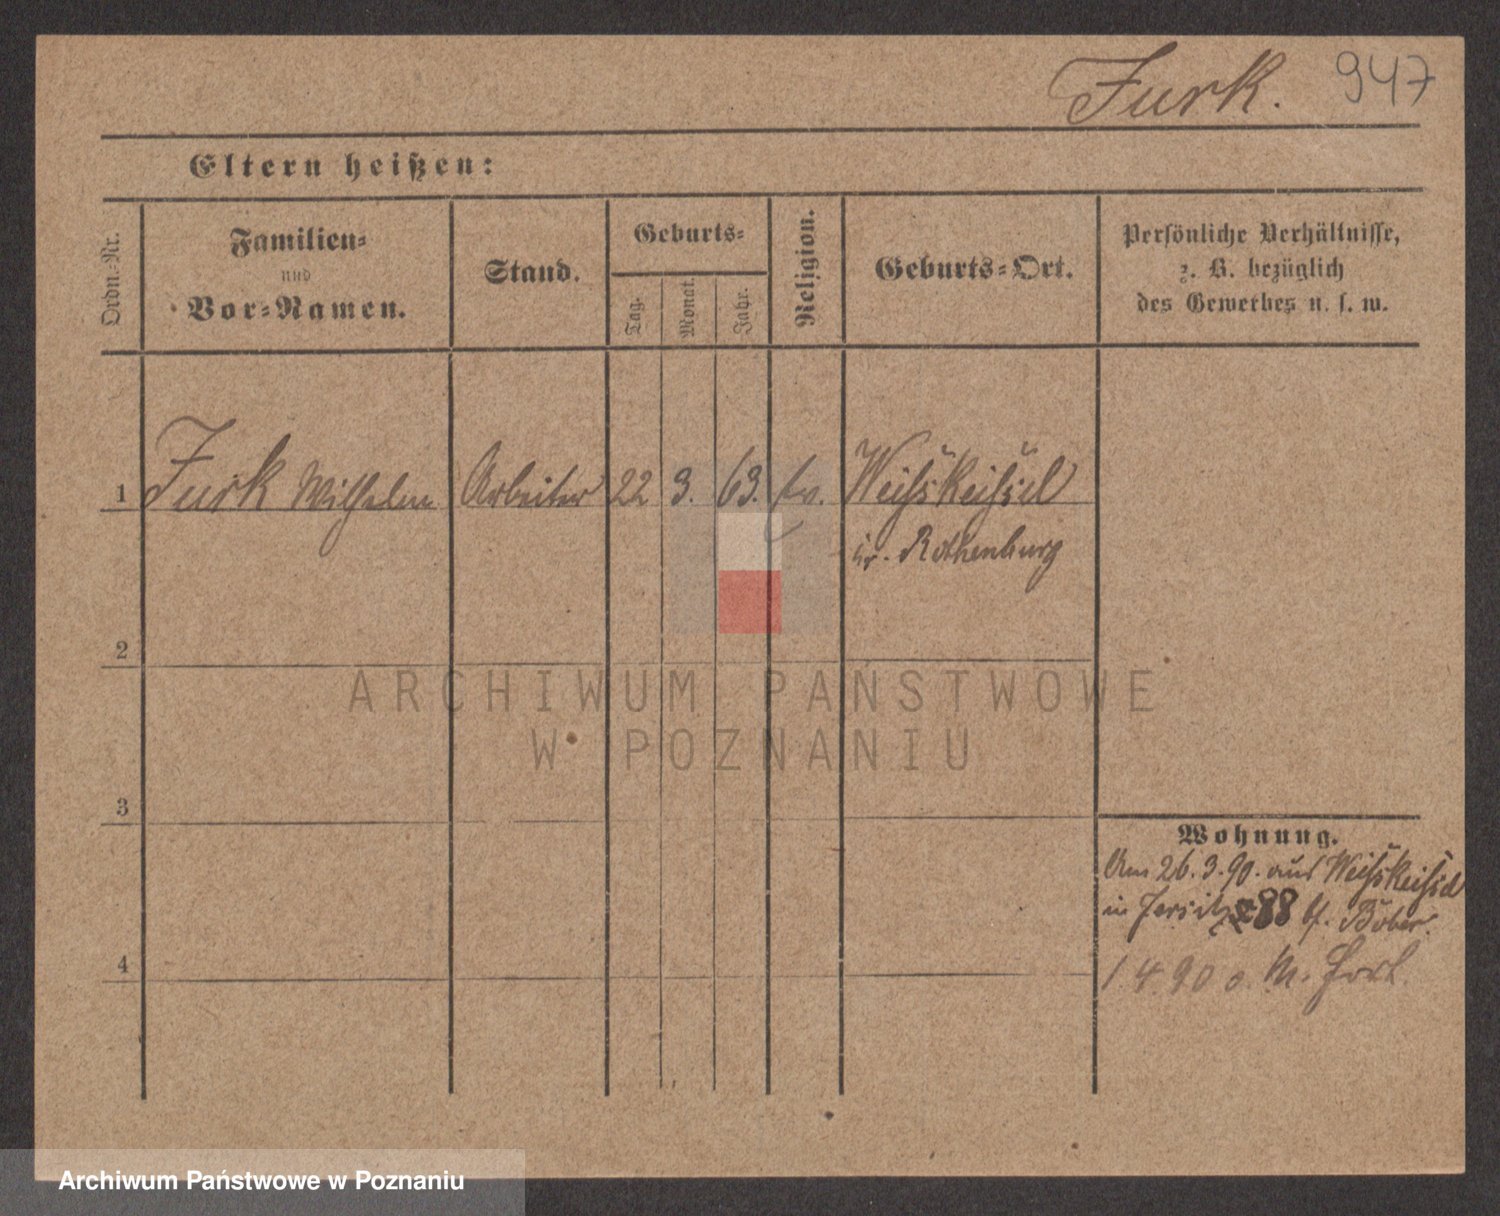 Furk. 947
Eltern heißen:
Ordn.-Nr.
Familien-
und
Vor-Namen.
Stand.
Geburts-
Tag.
Monat.
Jahr.
Religion.
Geburts-Ort.
Persönliche Verhältnisse,
z. B. bezüglich
des Gewerbes u. s. w.
1 Furk Wilhelm Arbeiter 22 3. 63. ev. Weißkeißel
Kr. Rothenburg
2
ARCHIWUM PAŃSTWOWE
W POZNANIU
3
Wohnung.
Am 26.3.90. aus Weißkeißel
in Jersitz 88 b. Böber.
4
1 4 90 o. M. Fort.
Archiwum Państwowe w Poznaniu